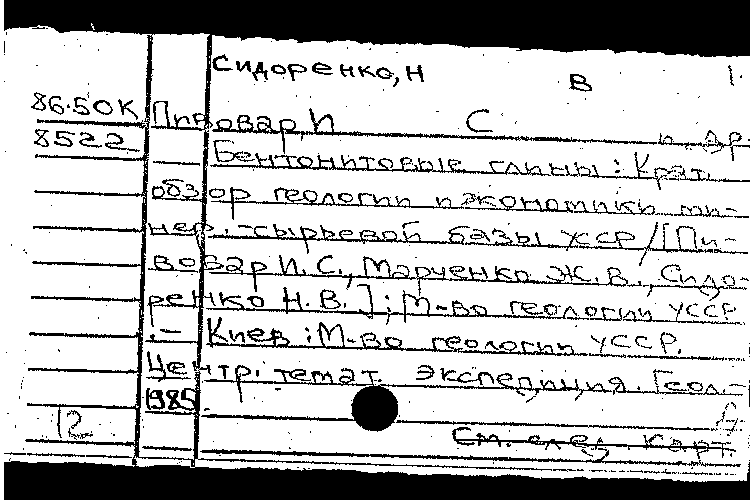 Сидоренко, Н В 1.
86.50К Пивовар, И С и др
8522 Бентонитовые глины : Крат.
обзор геологии и экономики ми-
нер.-сырьевой базы УССР / [Пи-
вовар И. С., Марченко Ж. В., Сидо-
ренко Н. В.] ; М-во геологии УССР
.- Киев : М-во геологии УССР.
Центр. темат. экспедиция. Геол.-
1985
12 См. след. карт.